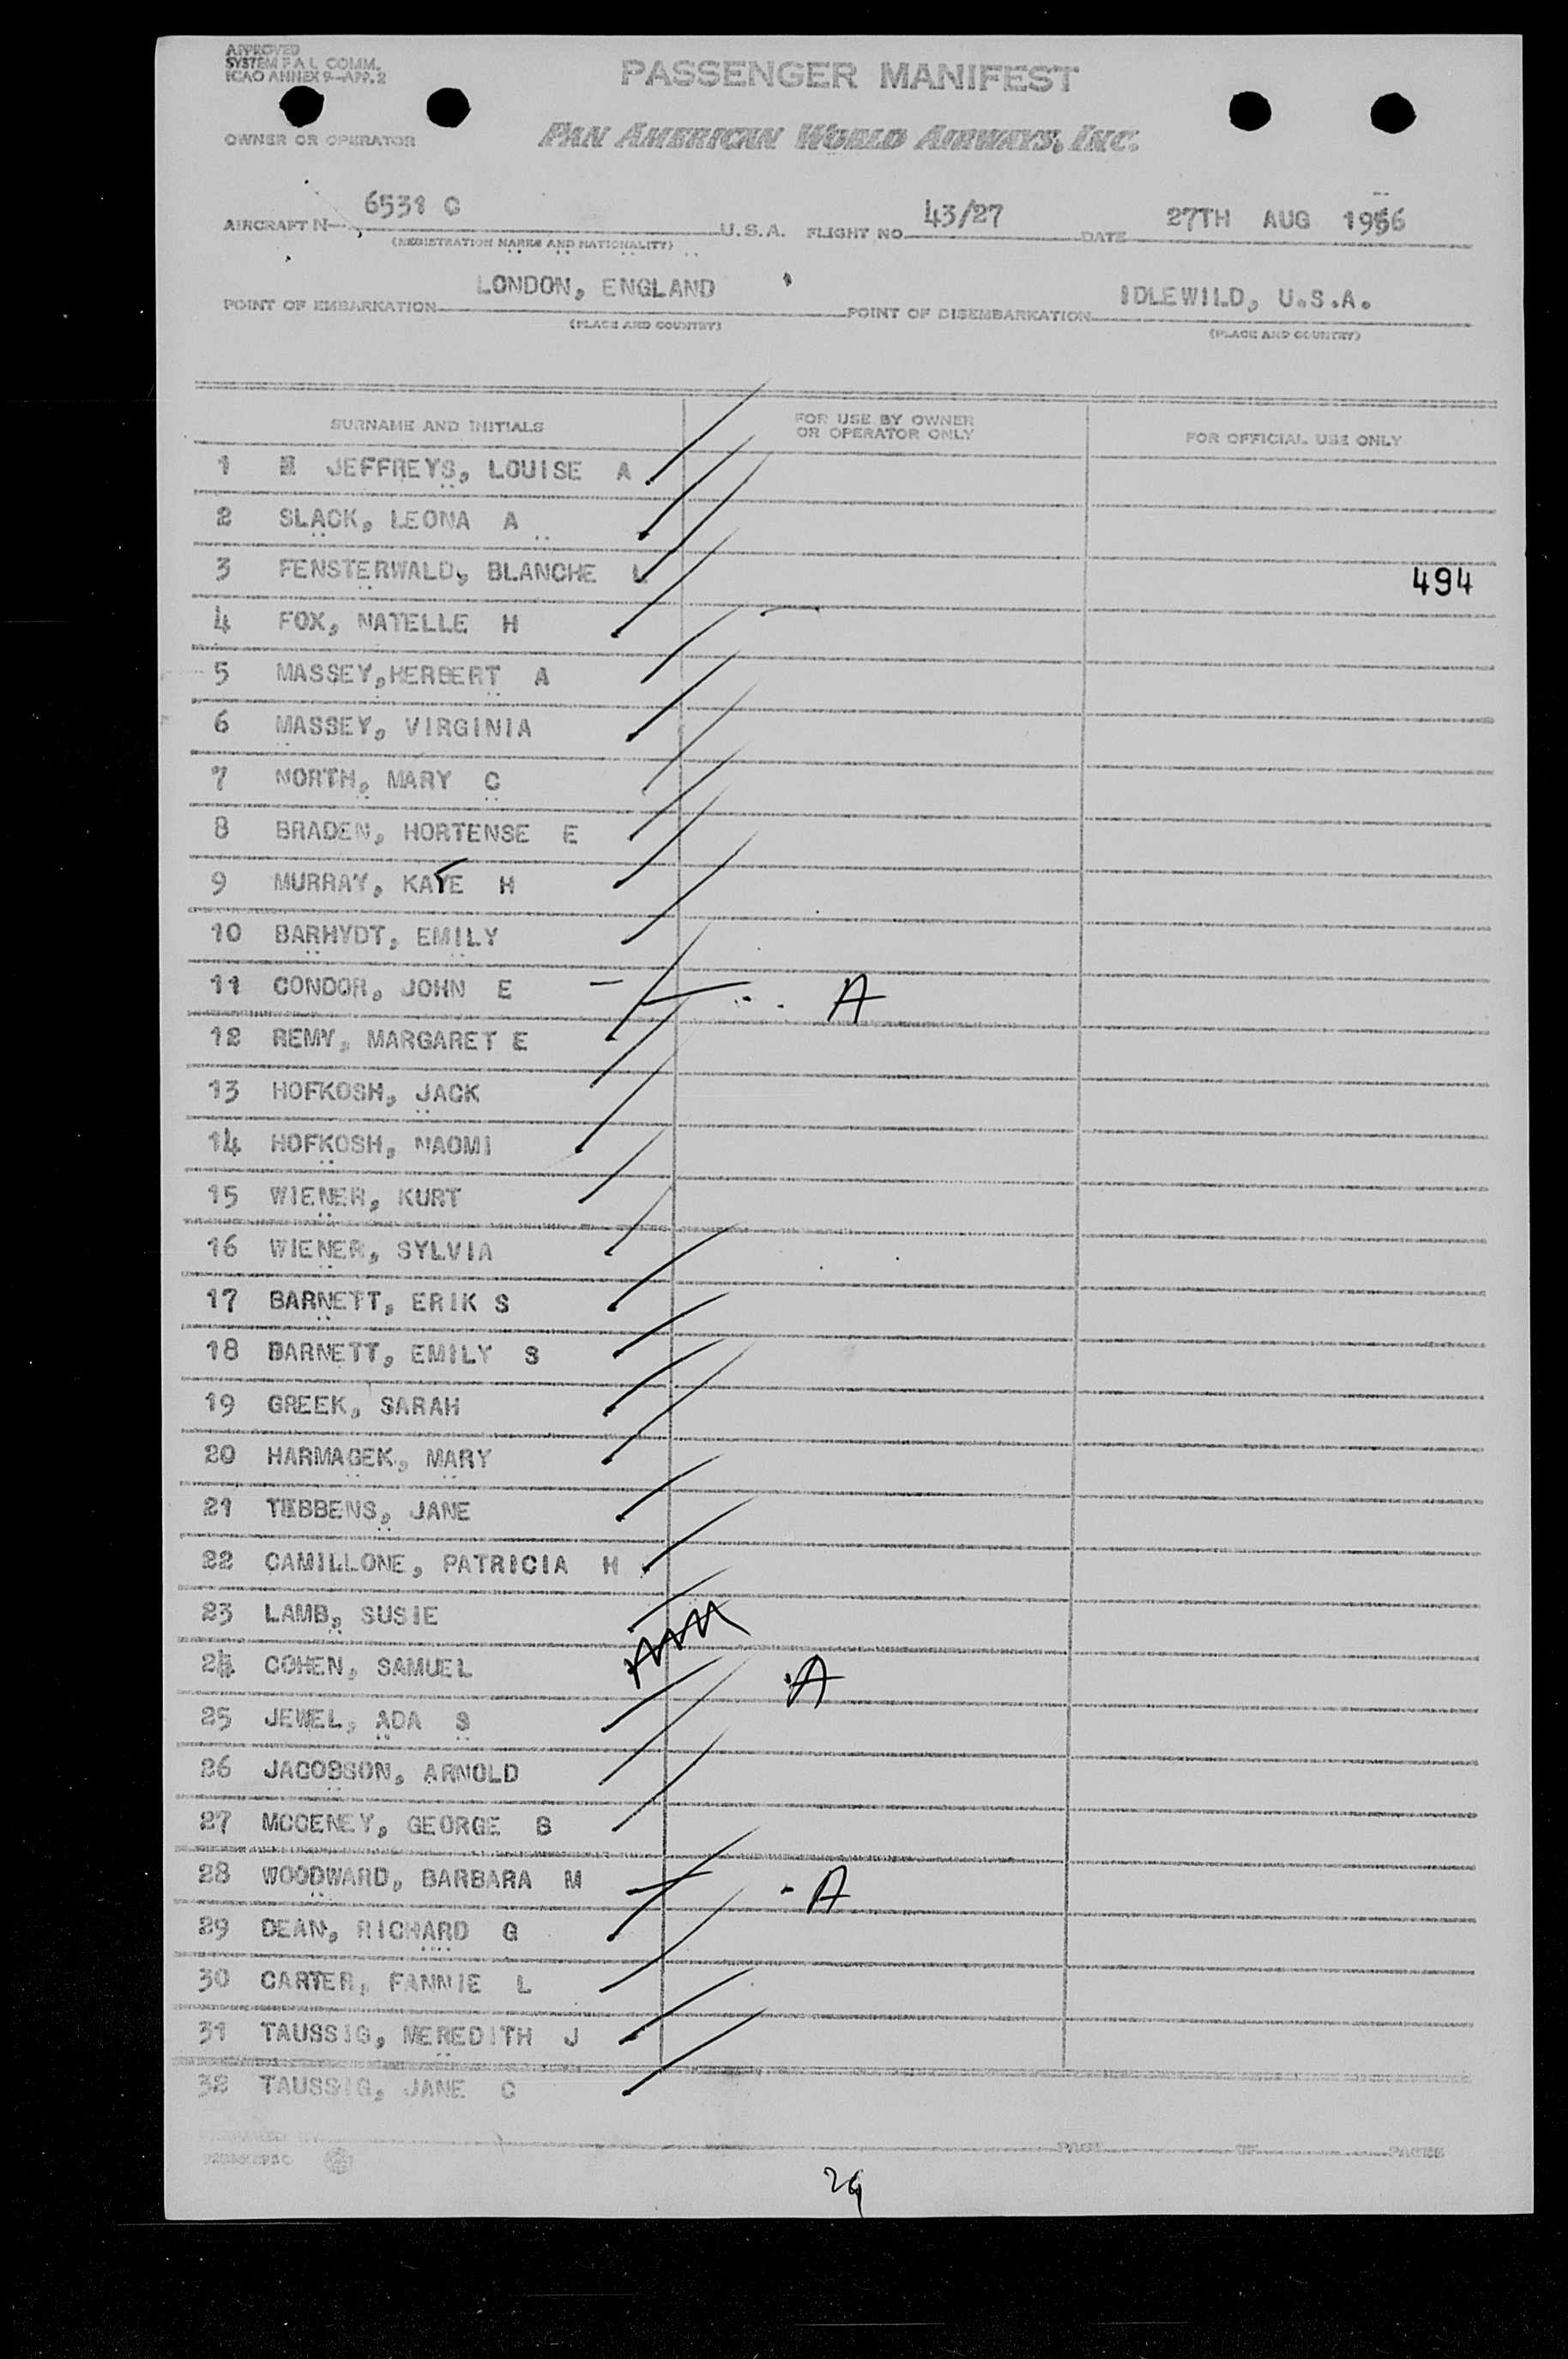 APPROVED
SYSTEM F A L COMM.
ICAO ANNEX 9-APP. 2
PASSENGER MANIFEST
OWNER OR OPERATOR
PAN AMERICAN WORLD AIRWAYS, INC.
AIRCRAFT N- 6538 C U.S.A. FLIGHT NO. 43/27 DATE 27TH AUG 1956
(REGISTRATION MARKS AND NATIONALITY)
POINT OF EMBARKATION LONDON, ENGLAND POINT OF DISEMBARKATION IDLEWILD, U.S.A.
(PLACE AND COUNTRY) (PLACE AND COUNTRY)
SURNAME AND INITIALS FOR USE BY OWNER OR OPERATOR ONLY FOR OFFICIAL USE ONLY
1 JEFFREYS, LOUISE A
2 SLACK, LEONA A
3 FENSTERWALD, BLANCHE L 494
4 FOX, NATELLE H
5 MASSEY,HERBERT A
6 MASSEY, VIRGINIA
7 NORTH, MARY C
8 BRADEN, HORTENSE E
9 MURRAY, KAYE H
10 BARHYDT, EMILY
11 CONDOR, JOHN E - A
12 REMY, MARGARET E
13 HOFKOSH, JACK
14 HOFKOSH, NAOMI
15 WIENER, KURT
16 WIENER, SYLVIA
17 BARNETT, ERIK S
18 BARNETT, EMILY S
19 GREEK, SARAH
20 HARMACEK, MARY
21 TEBBENS, JANE
22 CAMILLONE, PATRICIA H
23 LAMB, SUSIE
24 COHEN, SAMUEL A
25 JEWEL, ADA S
26 JACOBSON, ARNOLD
27 MCCENEY, GEORGE B
28 WOODWARD, BARBARA M - A
29 DEAN, RICHARD G
30 CARTER, FANNIE L
31 TAUSSIG, MEREDITH J
32 TAUSSIG, JANE C
PAGE OF PAGES
29